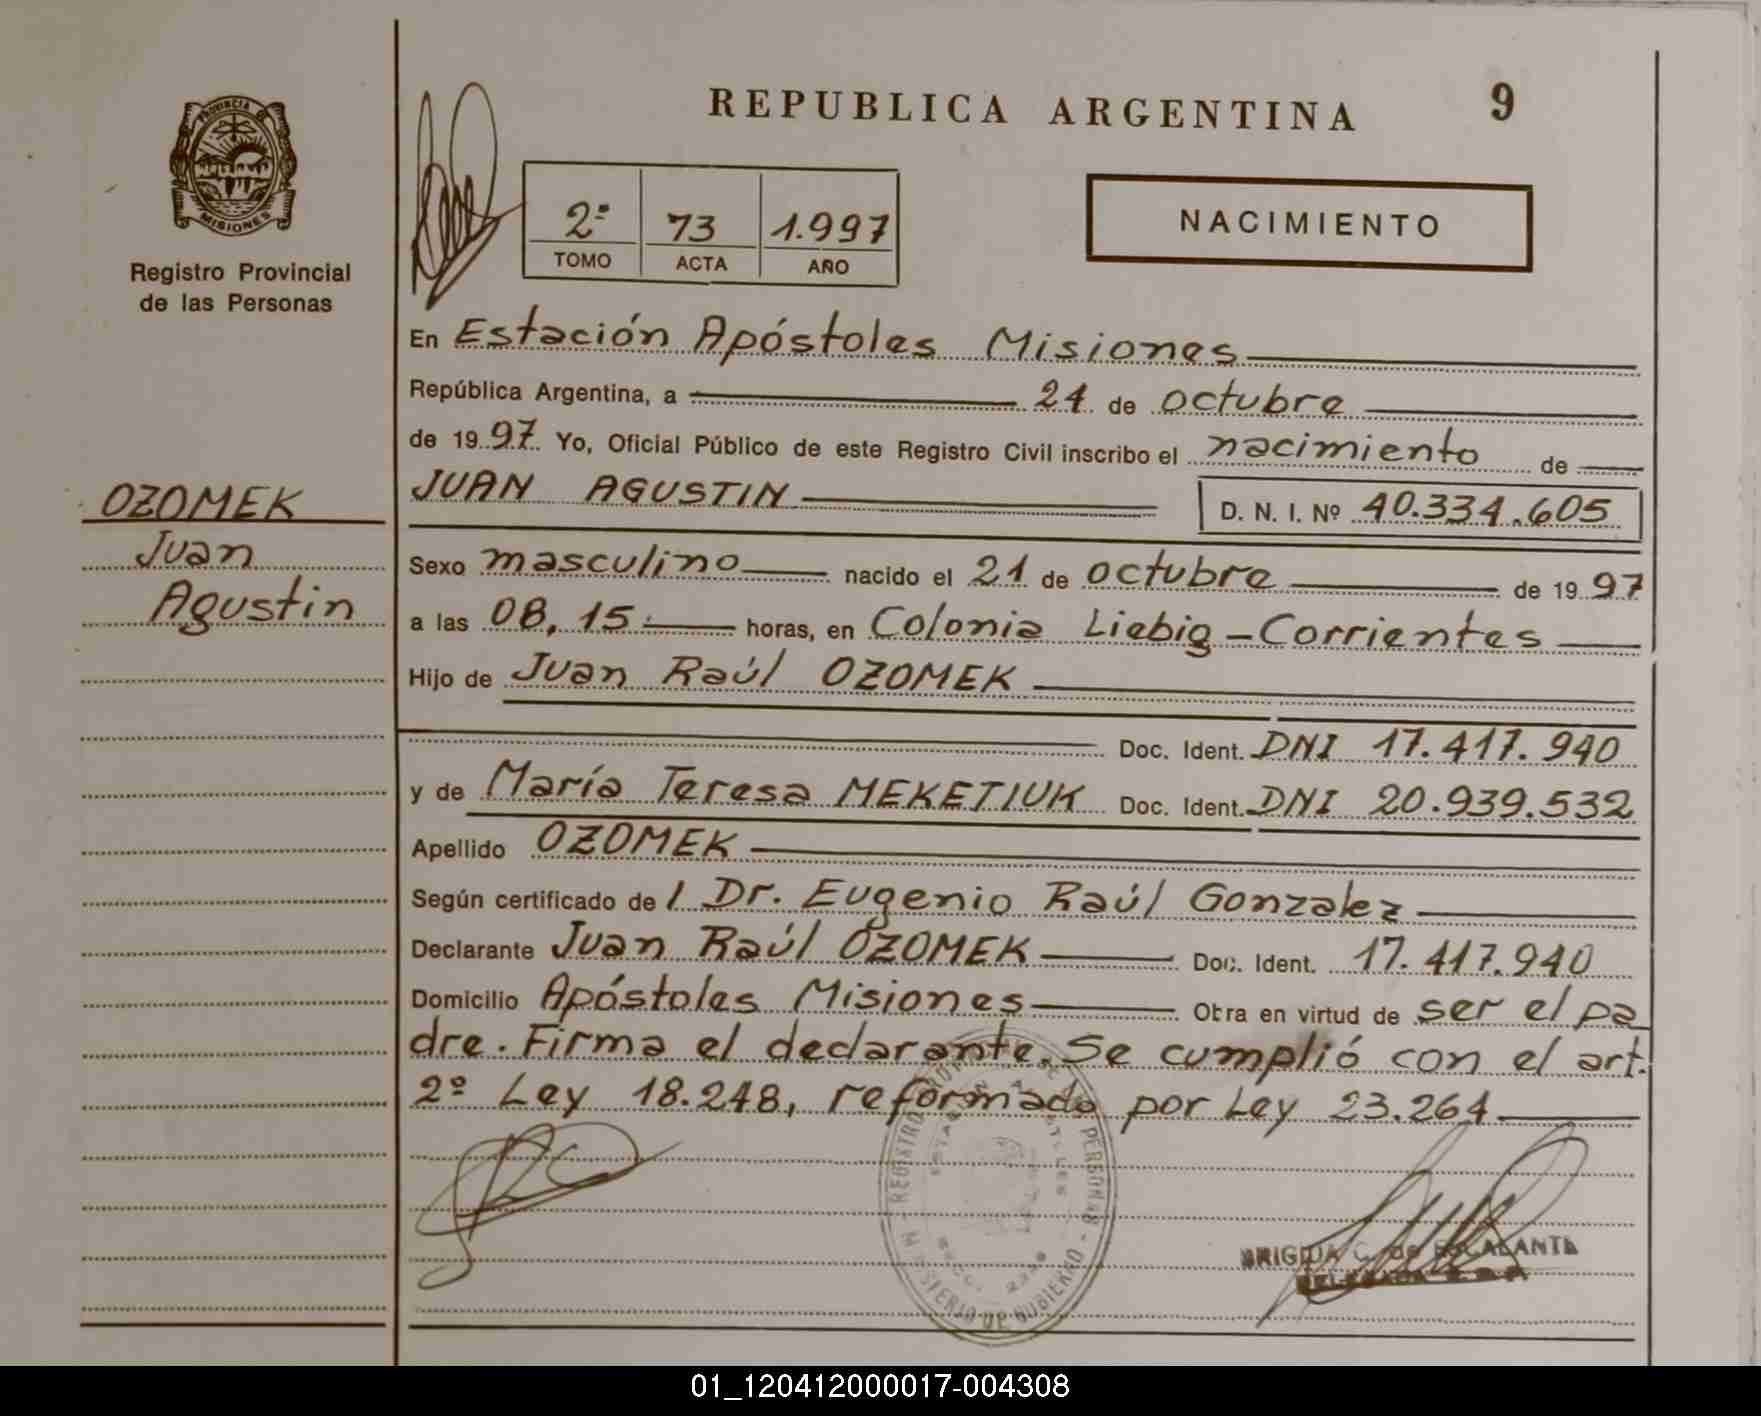 REPUBLICA ARGENTINA 9
PROVINCIA
MISIONES
Registro Provincial
de las Personas
2º 73 1.997
TOMO ACTA AÑO
NACIMIENTO
En Estación Apóstoles Misiones
República Argentina, a 24 de octubre
de 19 97 Yo, Oficial Público de este Registro Civil inscribo el nacimiento de
JUAN AGUSTIN D. N. I. Nº 40.334.605
OZOMEK
Juan
Agustin
Sexo masculino nacido el 21 de octubre de 19 97
a las 08,15 horas, en Colonia Liebig - Corrientes
Hijo de Juan Raúl OZOMEK
Doc. Ident. DNI 17.417.940
y de María Teresa MEKETIUK Doc. Ident. DNI 20.939.532
Apellido OZOMEK
Según certificado de l Dr. Eugenio Raúl Gonzalez
Declarante Juan Raúl OZOMEK Doc. Ident. 17.417.940
Domicilio Apóstoles Misiones Obra en virtud de ser el pa
dre. Firma el declarante. Se cumplió con el art.
2º Ley 18.248, reformado por Ley 23.264
BRIGIDA C. de ESCALANTE
01_120412000017-004308